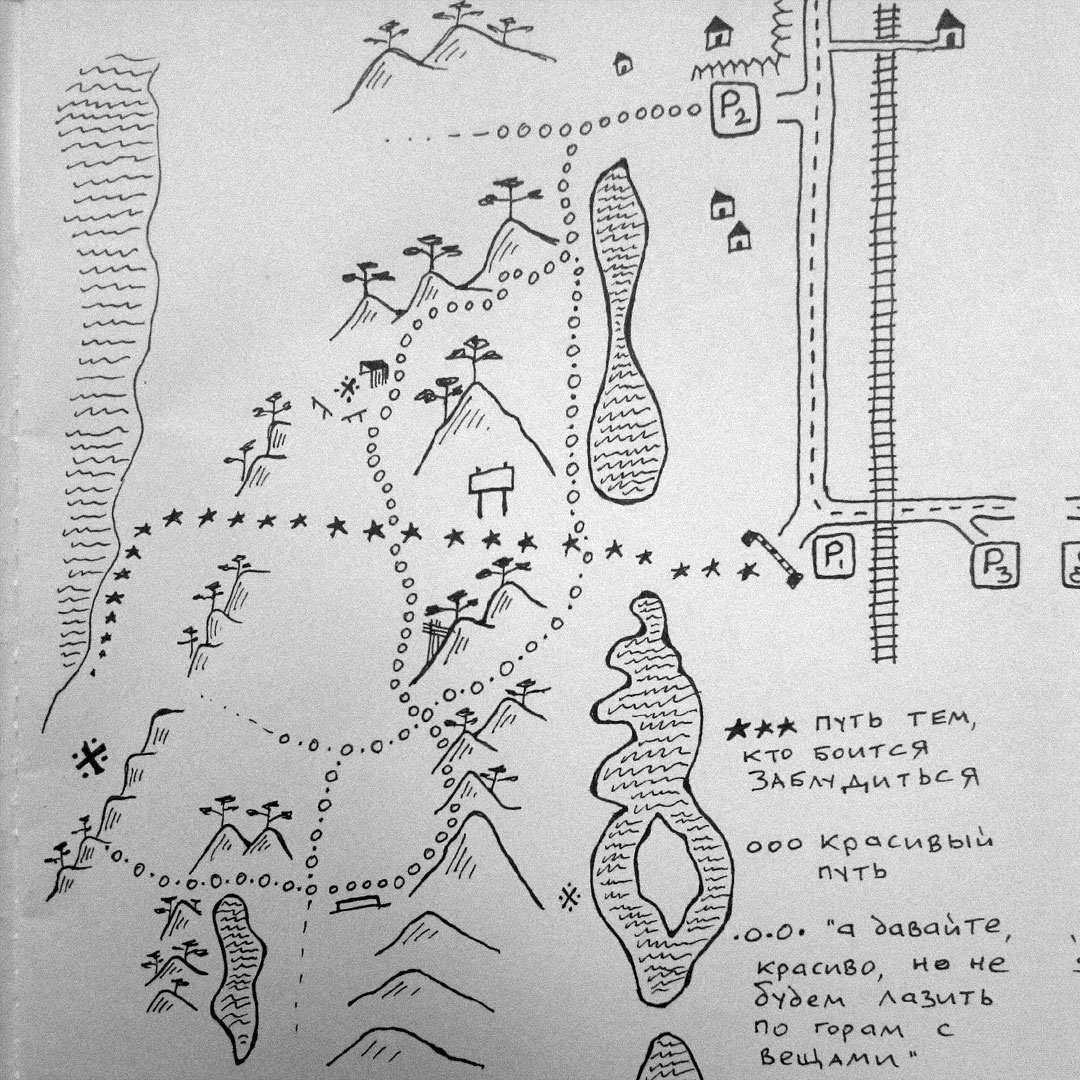 P2
P1
P3
★★★ ПУТЬ ТЕМ,
КТО БОИТСЯ
ЗАБЛУДИТЬСЯ
ооо КРАСИВЫЙ
ПУТЬ
.о.о. "а давайте,
красиво, но не
будем лазить
по горам с
вещами"